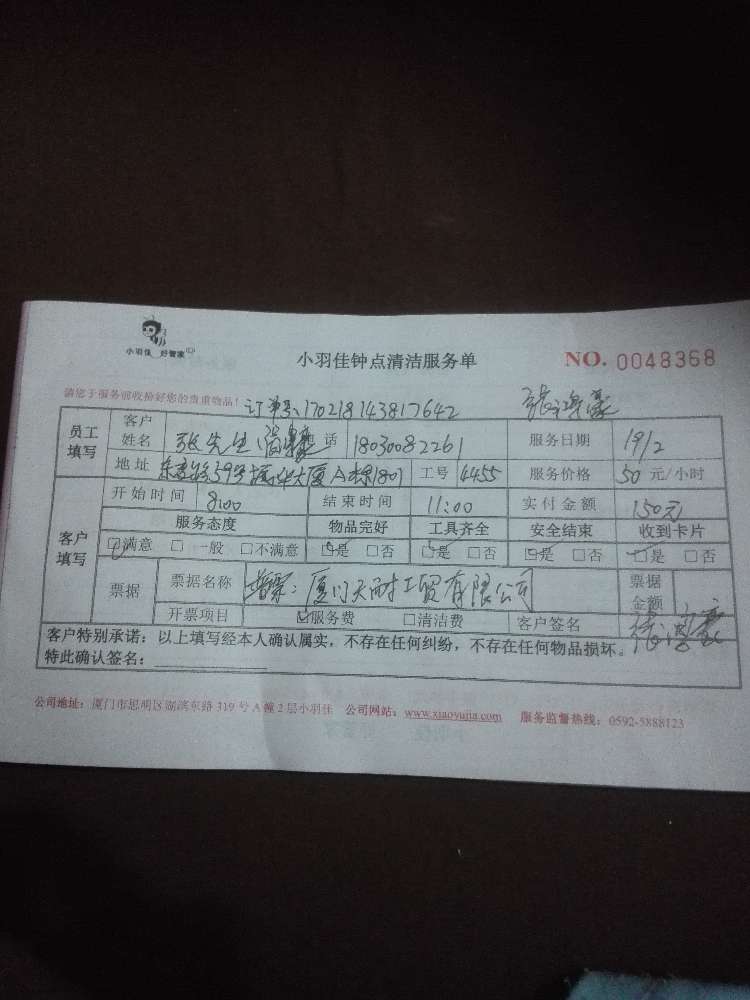 小羽佳 好管家
小羽佳钟点清洁服务单 NO. 0048368
请您于服务前收捡好您的贵重物品! 订单号:170218143817642
员工填写 客户姓名 张先生 电话 18030082261 服务日期 19/2
地址 A栋1801 工号 4455 服务价格 50 元/小时
客户填写 开始时间 8:00 结束时间 11:00 实付金额 150元
服务态度 物品完好 工具齐全 安全结束 收到卡片
☑满意 □ 一般 □不满意 ☑是 □否 ☑是 □否 ☑是 □否 ☑是 □否
票据 票据名称 普票:厦门天耐工贸有限公司 票据金额
开票项目 ☑服务费 □清洁费 客户签名
客户特别承诺:以上填写经本人确认属实,不存在任何纠纷,不存在任何物品损坏。
特此确认签名:
公司地址:厦门市思明区湖滨东路 319 号 A 幢 2 层小羽佳 公司网站:www.xiaoyujia.com 服务监督热线:0592-5888123